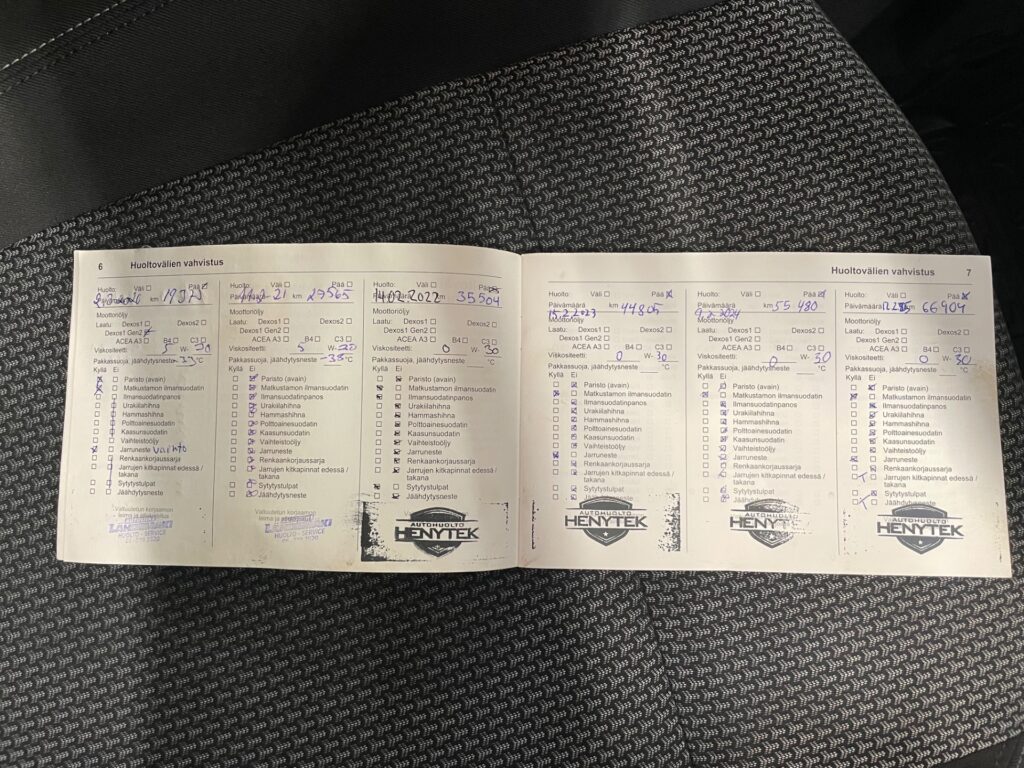 6 Huoltovälien vahvistus
Huolto: Väli Pää
Päivämäärä km
Moottoriöljy
Laatu: Dexos1 Dexos2
Dexos1 Gen2
ACEA A3 B4 C3
Viskositeetti: 5 W-
Pakkassuoja, jäähdytysneste °C
Kyllä Ei
Paristo (avain)
Matkustamon ilmansuodatin
Ilmansuodatinpanos
Urakiilahihna
Hammashihna
Polttoainesuodatin
Kaasunsuodatin
Vaihteistoöljy
Jarruneste vaihto
Renkaankorjaussarja
Jarrujen kitkapinnat edessä /
takana
Sytytystulpat
Jäähdytysneste
Valtuutetun korjaamon
leima ja allekirjoitus
HUOLTO - SERVICE
Huolto: Väli Pää
Päivämäärä km 27565
Moottoriöljy
Laatu: Dexos1 Dexos2
Dexos1 Gen2
ACEA A3 B4 C3
Viskositeetti: 5 W-
Pakkassuoja, jäähdytysneste -38 °C
Kyllä Ei
Paristo (avain)
Matkustamon ilmansuodatin
Ilmansuodatinpanos
Urakiilahihna
Hammashihna
Polttoainesuodatin
Kaasunsuodatin
Vaihteistoöljy
Jarruneste
Renkaankorjaussarja
Jarrujen kitkapinnat edessä /
takana
Sytytystulpat
Jäähdytysneste
HUOLTO - SERVICE
Huolto: Väli Pää
14.02.2022 km 35504
Moottoriöljy
Laatu: Dexos1 Dexos2
Dexos1 Gen2
ACEA A3 B4 C3
Viskositeetti: 0 W- 30
Pakkassuoja, jäähdytysneste °C
Kyllä Ei
Paristo (avain)
Matkustamon ilmansuodatin
Ilmansuodatinpanos
Urakiilahihna
Hammashihna
Polttoainesuodatin
Kaasunsuodatin
Vaihteistoöljy
Jarruneste
Renkaankorjaussarja
Jarrujen kitkapinnat edessä /
takana
Sytytystulpat
Jäähdytysneste
AUTOHUOLTO
HENYTEK
Huoltovälien vahvistus 7
Huolto: Väli Pää
Päivämäärä km 44805
15.2.2023
Moottoriöljy
Laatu: Dexos1 Dexos2
Dexos1 Gen2
ACEA A3 B4 C3
Viskositeetti: 0 W- 30
Pakkassuoja, jäähdytysneste °C
Kyllä Ei
Paristo (avain)
Matkustamon ilmansuodatin
Ilmansuodatinpanos
Urakiilahihna
Hammashihna
Polttoainesuodatin
Kaasunsuodatin
Vaihteistoöljy
Jarruneste
Renkaankorjaussarja
Jarrujen kitkapinnat edessä /
takana
Sytytystulpat
Jäähdytysneste
AUTOHUOLTO
HENYTEK
Huolto: Väli Pää
Päivämäärä km 55 480
9.2.2024
Moottoriöljy
Laatu: Dexos1 Dexos2
Dexos1 Gen2
ACEA A3 B4 C3
Viskositeetti: 0 W- 30
Pakkassuoja, jäähdytysneste °C
Kyllä Ei
Paristo (avain)
Matkustamon ilmansuodatin
Ilmansuodatinpanos
Urakiilahihna
Hammashihna
Polttoainesuodatin
Kaasunsuodatin
Vaihteistoöljy
Jarruneste
Renkaankorjaussarja
Jarrujen kitkapinnat edessä /
takana
Sytytystulpat
Jäähdytysneste
AUTOHUOLTO
HENYTEK
Huolto: Väli Pää
Päivämäärä km 66904
Moottoriöljy
Laatu: Dexos1 Dexos2
Dexos1 Gen2
ACEA A3 B4 C3
Viskositeetti: 0 W- 30
Pakkassuoja, jäähdytysneste °C
Kyllä Ei
Paristo (avain)
Matkustamon ilmansuodatin
Ilmansuodatinpanos
Urakiilahihna
Hammashihna
Polttoainesuodatin
Kaasunsuodatin
Vaihteistoöljy
Jarruneste
Renkaankorjaussarja
Jarrujen kitkapinnat edessä /
takana
Sytytystulpat
Jäähdytysneste
AUTOHUOLTO
HENYTEK